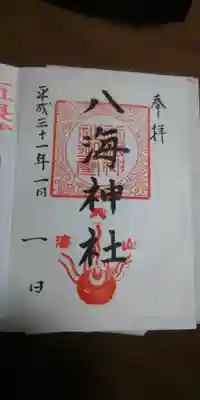 奉拝
八海神社
平成三十一年一月
一日
海 山